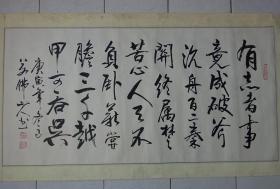 有志者事
竟成破釜
沉舟百二秦
關終属楚
苦心人天不
負卧薪嘗
膽三千越
甲可吞吳
庚寅年